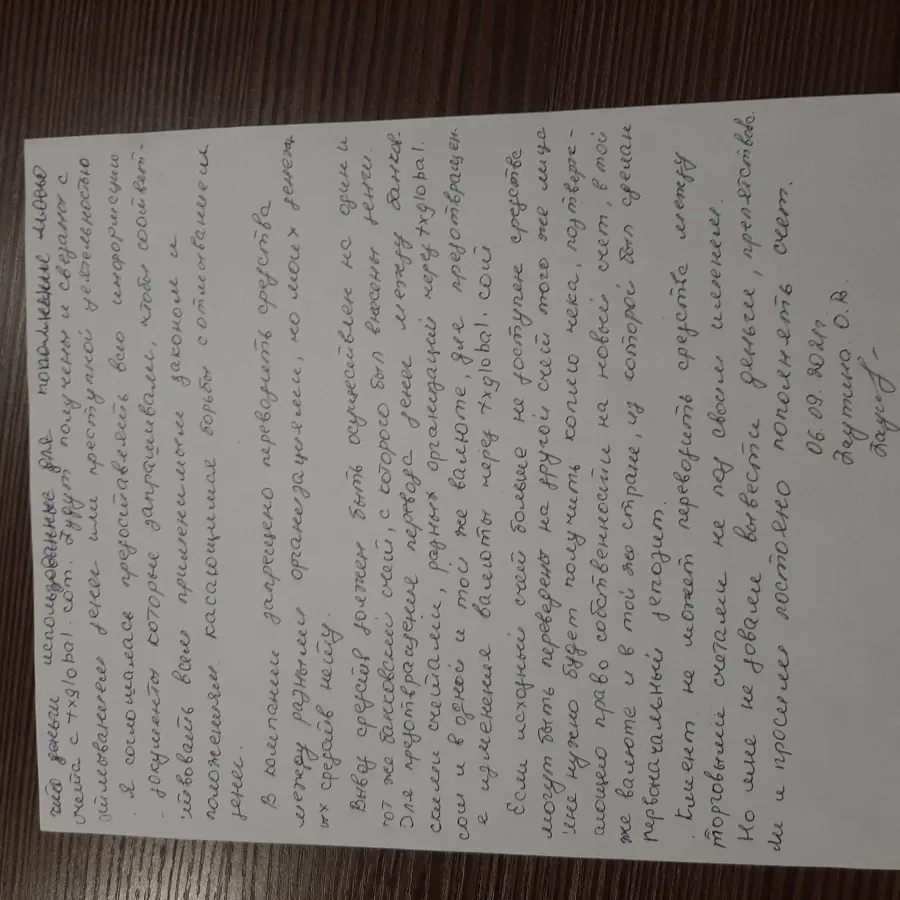 что деньги использованные для пополнение моего
счета с txglobal. com. будут получены и связаны с
отмыванием денег или преступной деятельностью
Я согласилась предоставлять всю информацию
документы которые запрашивали, чтобы соответ-
ствовать всем применимым законом и
положениям касающимися борьбы с отмыванием
денег.
В компании запрещено переводить средства
между разными организациями, но моих денеж
ых средств нету.
Вывод средств должен быть осуществлен на один и
тот же бансовский счет, с которого был внесены денги.
Для предотвращение перевода денег между банков.
скими счетами, разных организаций через txglobal.
com и одной и той же валюте, для предотвращен
е изменения валюты через txglobal. com
Если исходный счет больше не доступен средства
могут быть переведены на другой счет того же лица
мне нужно будет получить копию чека, подтверж-
дающею право собственности на новый счет, в той
же валюте и в той же стране, из которой был сделан
первоначальный депозит.
Клиент не может переводить средства между
торговыми счетами не под своим именем.
Но мне не довали вывести деньги, препятствова.
ли и просили постояно пополнять счет.
06.09.2021г.
О.В.